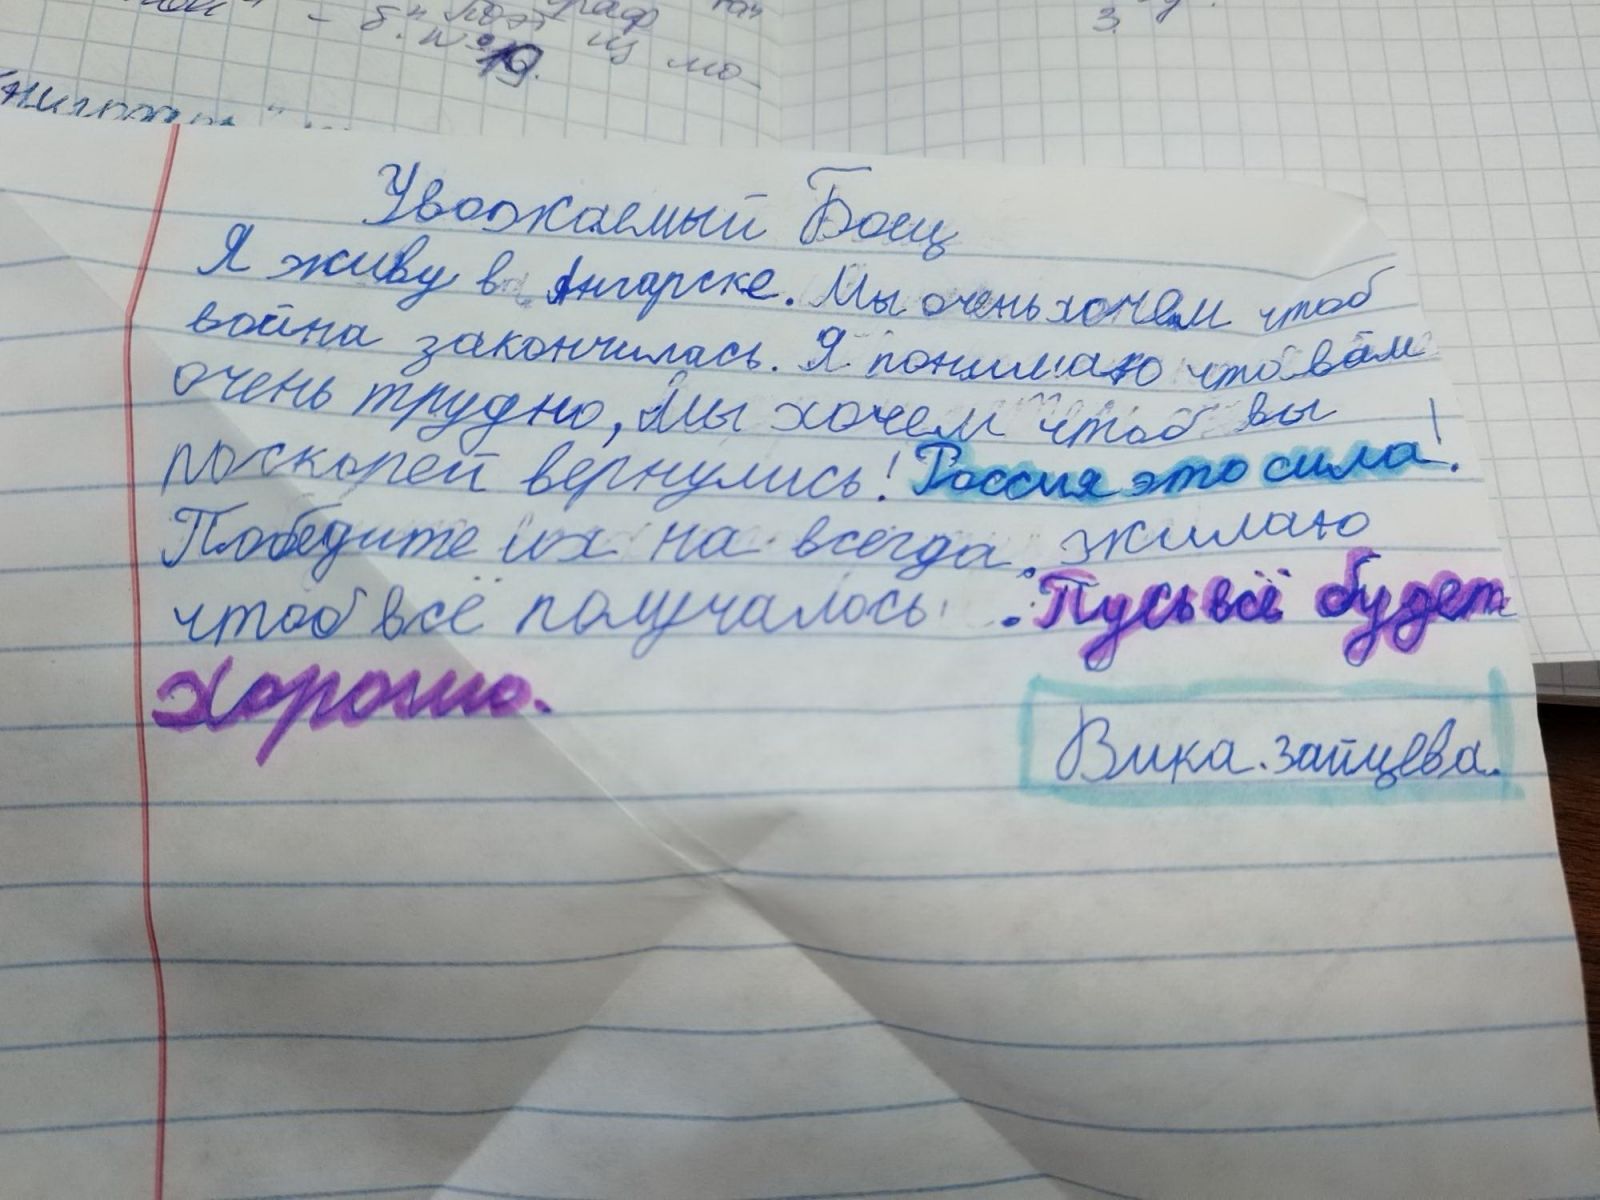 – 8. "Поэт
из мо-
№19.
3.
Уважаемый Боец
Я живу в Ангарске. Мы очень хочем чтоб
война закончилась. Я понимаю что вам
очень трудно, Мы хочем чтоб вы
поскорей вернулись! Россия это сила!
Победите их на всегда. жилаю
чтоб всё получалось. Пусь всё будет
хорошо.
Вика. зайцева.